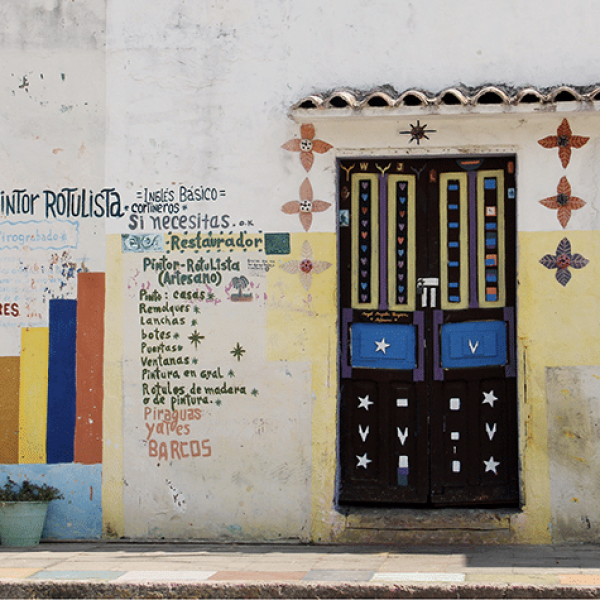 PINTOR ROTULISTA.
Pirograbado
RES
=INGLÉS BÁSICO=
Sí necesitas. o.k
Restaurador
Pintor-Rotulista
(Artesano)
Pinto: casas
Remolques
Lanchas
botes
Puertas
Ventanas
Pintura en gral
Rotulos de madera
o de pintura.
Piraguas
yates
BARCOS
W J